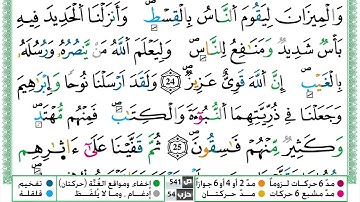 وَالْمِيزَانَ لِيَقُومَ النَّاسُ بِالْقِسْطِ ۖ وَأَنزَلْنَا الْحَدِيدَ فِيهِ
بَأْسٌ شَدِيدٌ وَمَنَٰفِعُ لِلنَّاسِ ۖ وَلِيَعْلَمَ اللَّهُ مَن يَنصُرُهُۥ وَرُسُلَهُۥ
بِالْغَيْبِ ۚ إِنَّ اللَّهَ قَوِيٌّ عَزِيزٌ 24 وَلَقَدْ أَرْسَلْنَا نُوحًا وَإِبْرَٰهِيمَ
وَجَعَلْنَا فِي ذُرِّيَّتِهِمَا النُّبُوَّةَ وَالْكِتَٰبَ ۖ فَمِنْهُم مُّهْتَدٍ ۖ
وَكَثِيرٌ مِّنْهُمْ فَٰسِقُونَ 25 ثُمَّ قَفَّيْنَا عَلَىٰٓ ءَاثَٰرِهِم
مدّ 6 حركات لزوماً مدّ 2 أو 4 أو 6 جوازاً ص 541 إخفاء، ومواقع الغُنَّة (حركتان) تفخيم
مدّ مشبع 6 حركات مدّ حركتان حزب 54 إدغام، وما لا يُلفَظ قلقلة